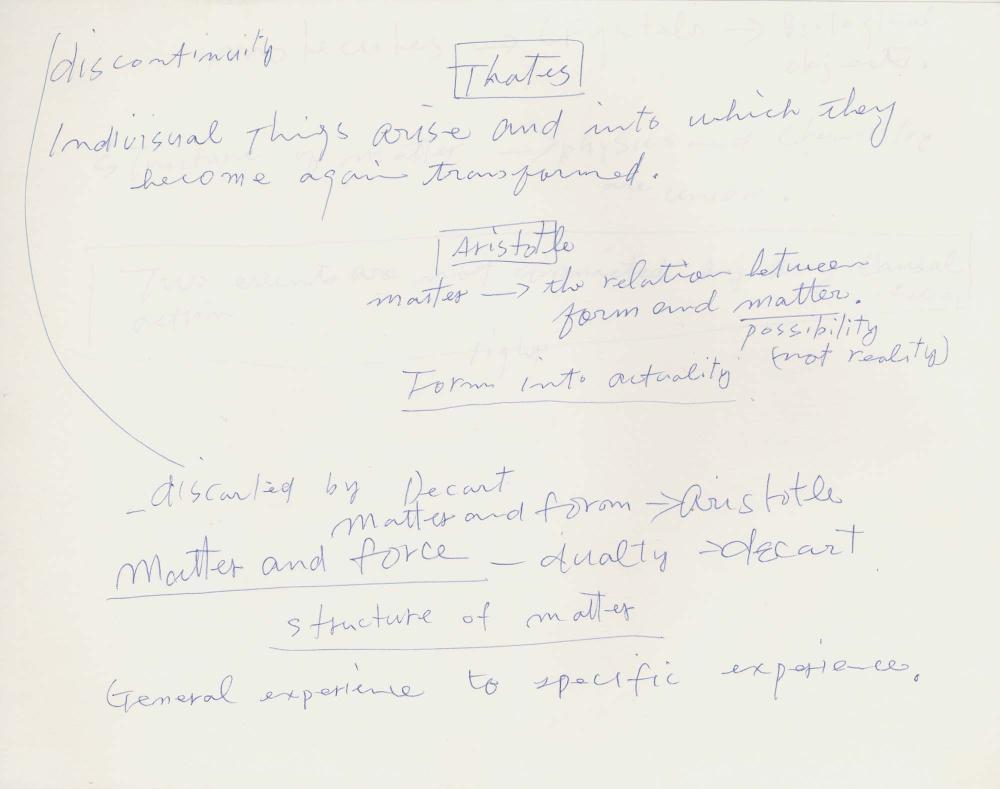 discontinuity
Thales
Indivisual Things arise and into which they
become again transformed.
Aristotle
matter → the relation between
form and matter.
possibility
(not reality)
Form into actuality
- discarted by Decart
Matter and form → Aristotle
Matter and force - dualty → decart
structure of matter
General experience to specific experience.